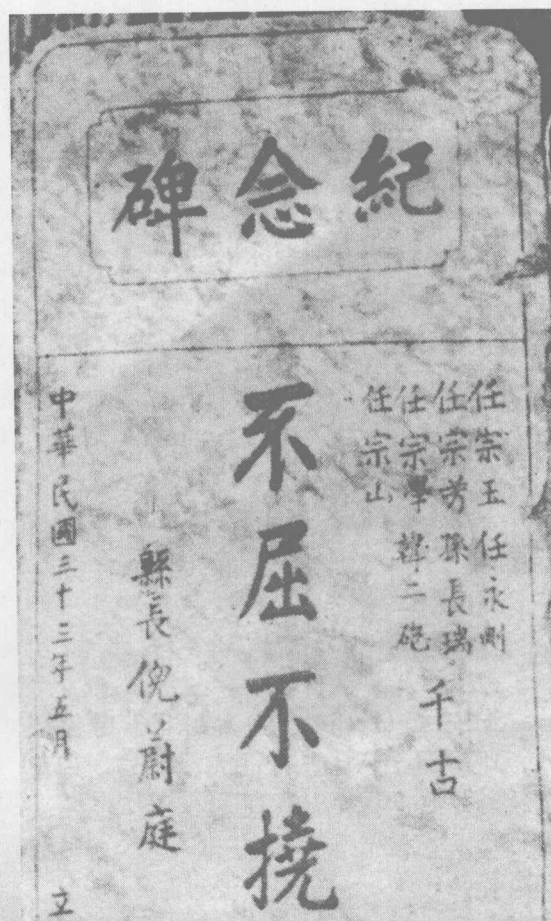 紀念碑
任宗玉 任永剛
任宗芳 孫長瑞
任宗學 韓二砲
任宗山
千古
不屈不撓
縣長倪蔚庭
中華民國三十三年五月 立